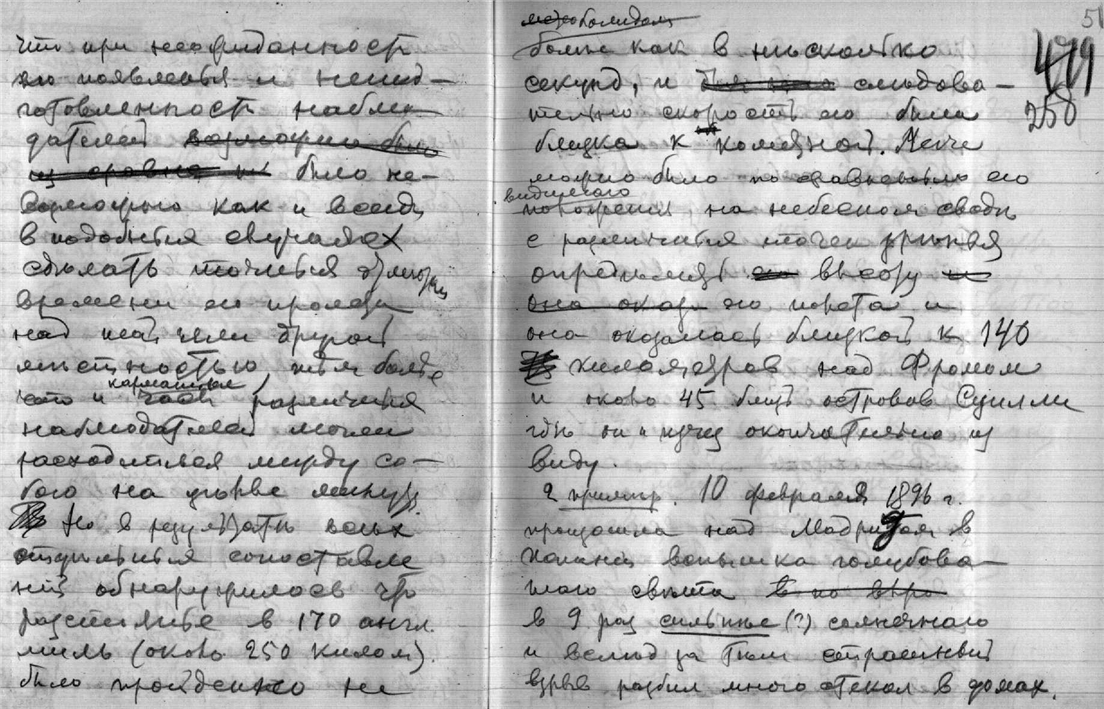 что при неожиданности
его появленья и непод-
готовленности наблю-
дателей
было не-
возможно как и всегда
в подобныя случаях
сделать точныя
времени его пролета
над той или другой
местностью тем более
карманныя
что и часы различныя
наблюдателей могли
расходиться между со-
бою на
Но в результате всех
отдельныя сопоставле
ний обнаружилось что
разстоянье в 170 англ.
миль (около 250 килом).
было пройденно не
51
479
250
болидом
более как в несколько
секунд, и следова-
тельно скорость его была
близка к кометной. Легче
можно было по сравненью его
видимаго
положения, на небесном своде
с различныя точек зренья
определить высоту
она оказа его полета и
она оказалась близкой к 140
километрав над Фромом
и около 45 близь островов Сцилли
где он и изчез окончательно из
виду.
2 пример. 10 февраля 1896 г.
произошла над Мадридом в
вспышка голубова-
таго света
в 9 раз сильнее (?) солнечнаго
и вслед за тем страшный
взрыв разбил много стекол в домах.